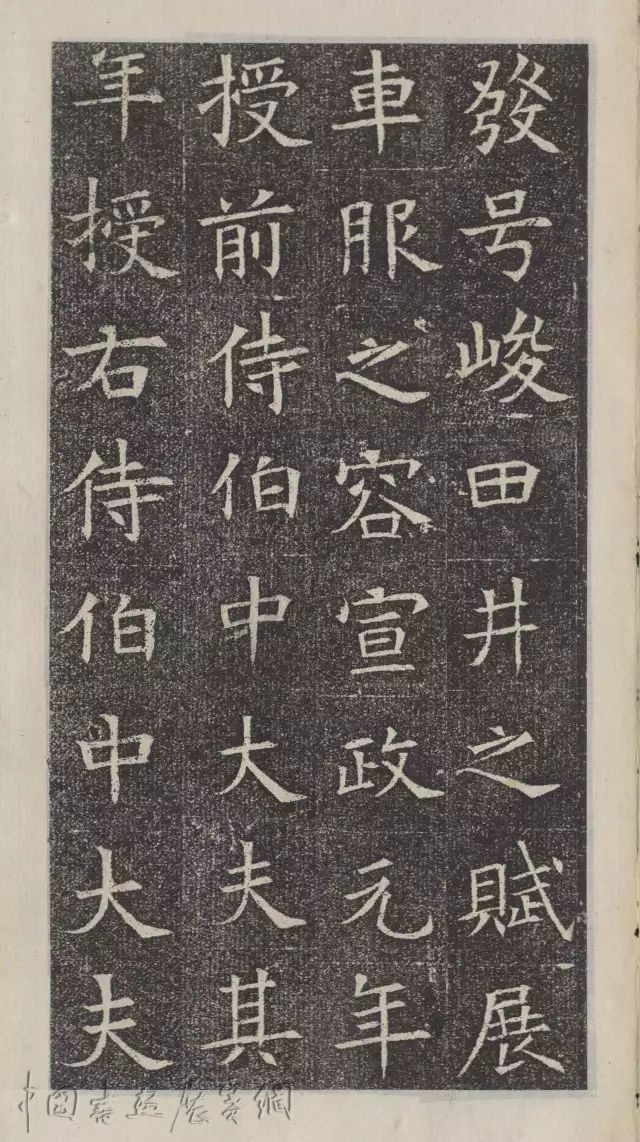 發号峻田井之賦展
車服之容宣政元年
授前侍伯中大夫其
年授右侍伯中大夫
中国书法展赛网